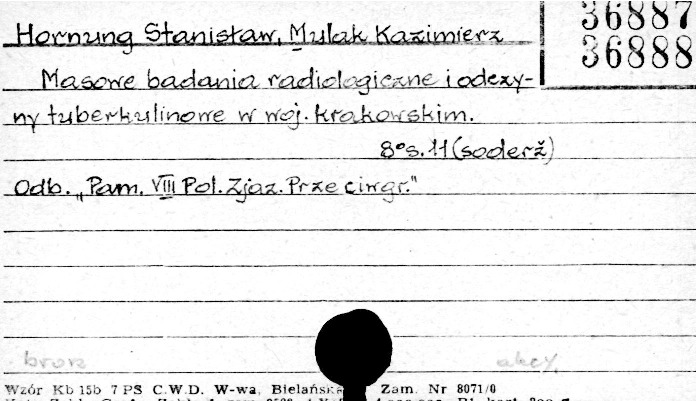 Hornung Stanisław, Mulak Kazimierz
36887
36888
Masowe badania radiologiczne i odczy-
ny tuberkulinowe w woj. krakowskim.
8° s. 11 (soderž)
Odb. „Pam. VIII Pol. Zjaz. Przeciwgr."
brosz
akcy.
Wzór Kb 15b 7 PS C.W.D. W-wa, Bielańska Zam. Nr 8071/0